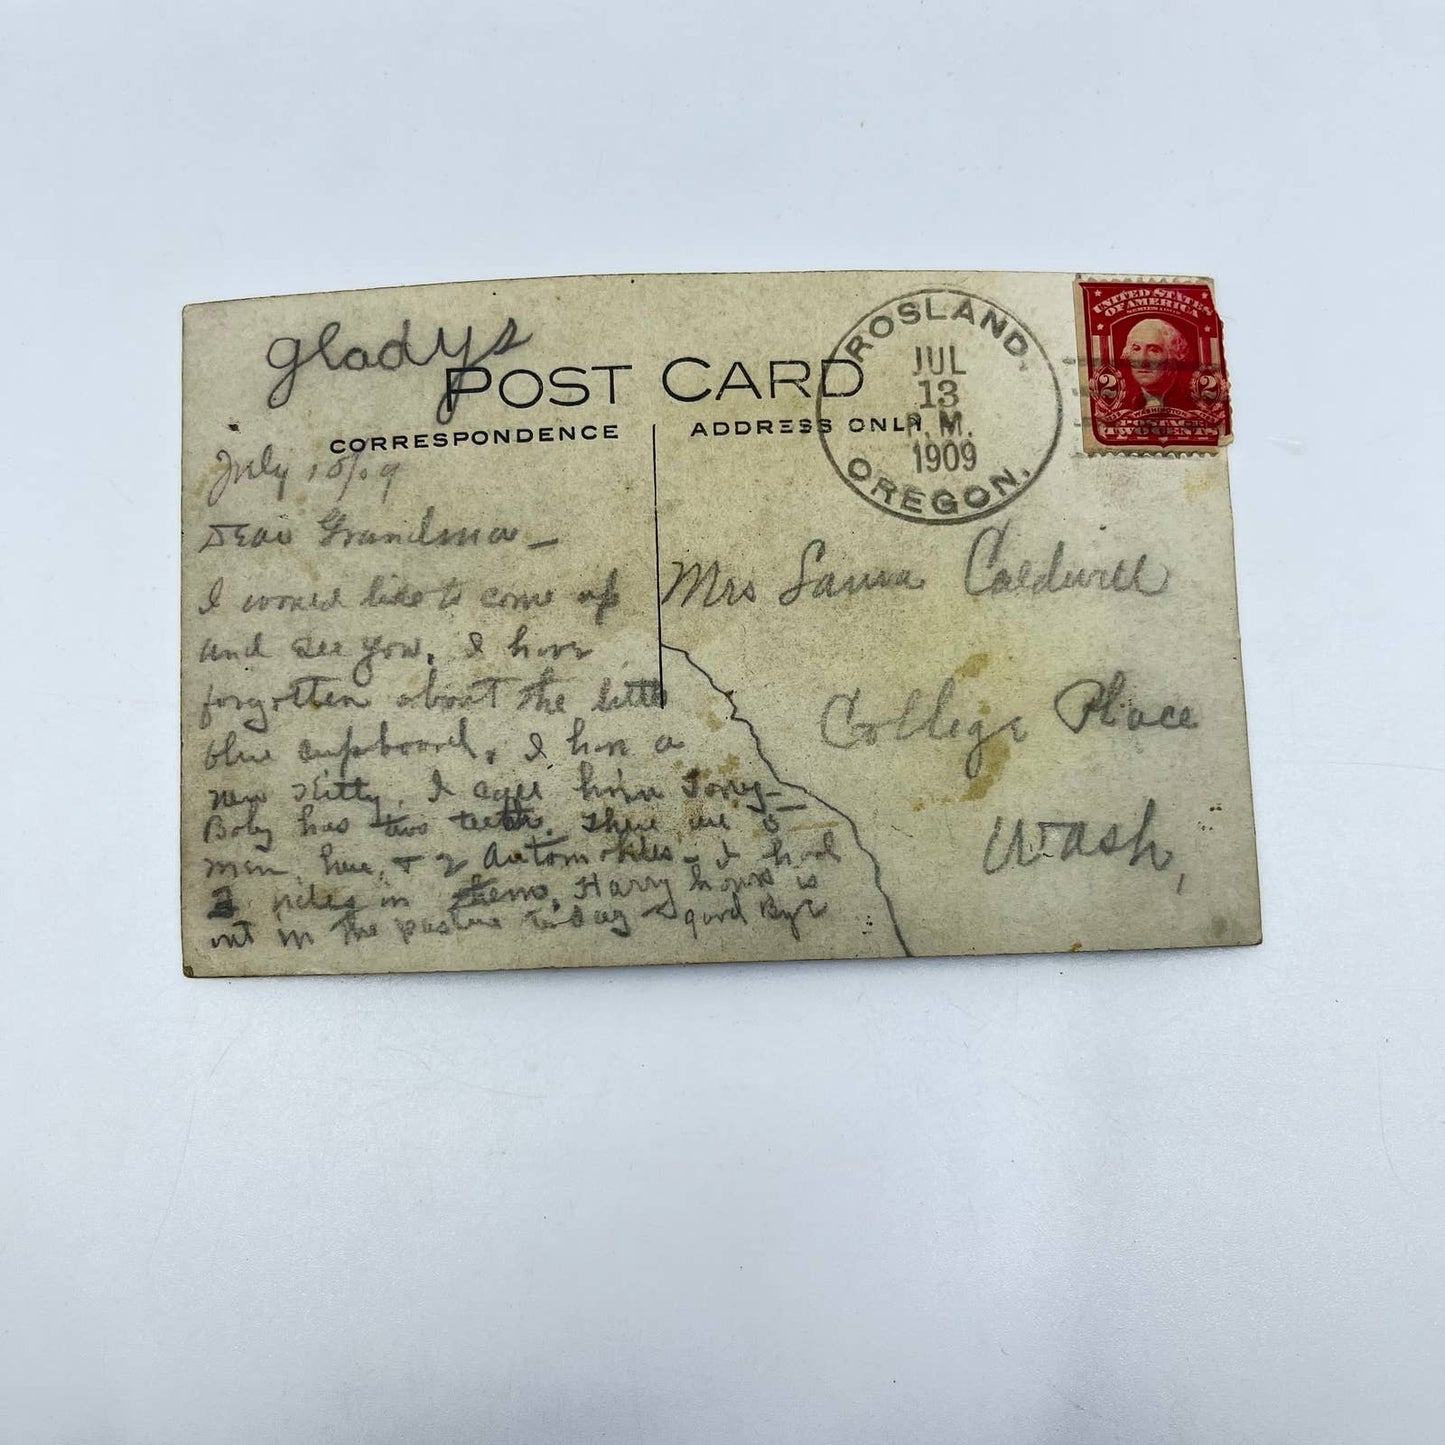 Gladys
POST CARD
CORRESPONDENCE
ADDRESS ONLY
ROSLAND,
JUL
13
P.M.
1909
OREGON.
UNITED STATES
OF AMERICA
SERIES 1902
2 2
WASHINGTON
POSTAGE
TWO CENTS
July
Dear Grandma —
I would like to come up
and see you. I have
forgotten about the little
blue cupboard. I have a
new Kitty. I call him Tony —
Baby has two teeth. There are
men here, & 2 Automobiles — I had
in them. Harry horse is
out in the pasture today — good Bye
Mrs Laura Caldwell
College Place
Wash,